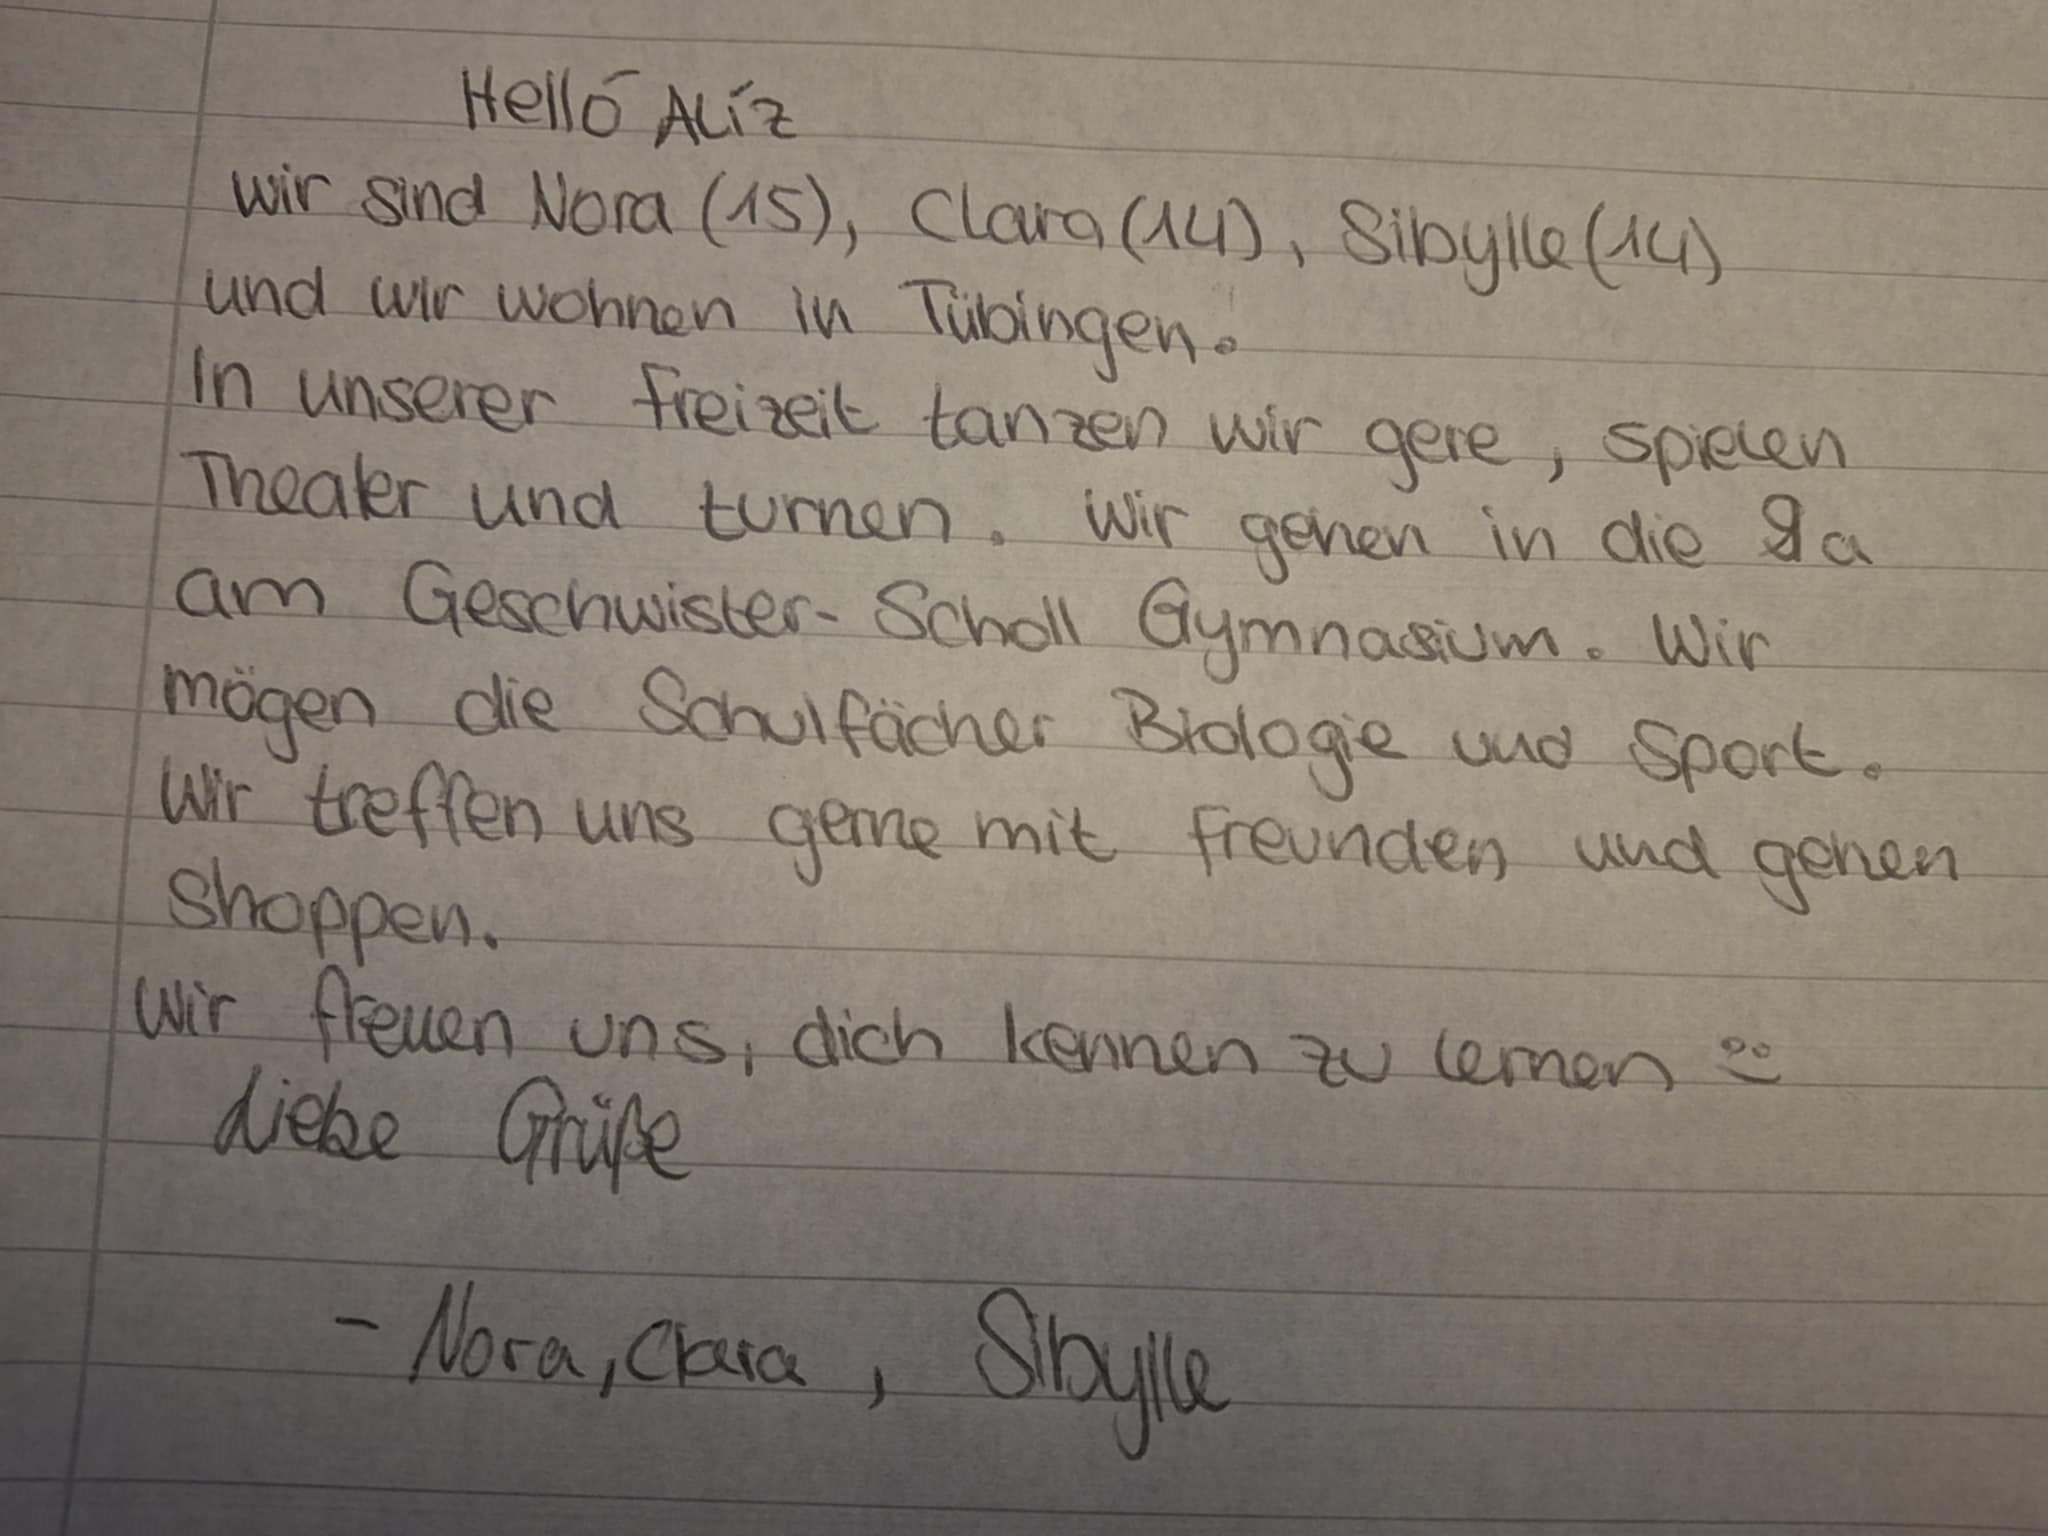 Helló Alíz
wir sind Nora (15), Clara (14), Sibylle (14)
und wir wohnen in Tübingen.
In unserer Freizeit tanzen wir gere, spielen
Theater und turnen. Wir gehen in die 9a
am Geschwister-Scholl Gymnasium. Wir
mögen die Schulfächer Biologie und Sport.
Wir treffen uns gerne mit Freunden und gehen
shoppen.
Wir freuen uns, dich kennen zu lernen :)
Liebe Grüße
- Nora, Clara, Sibylle